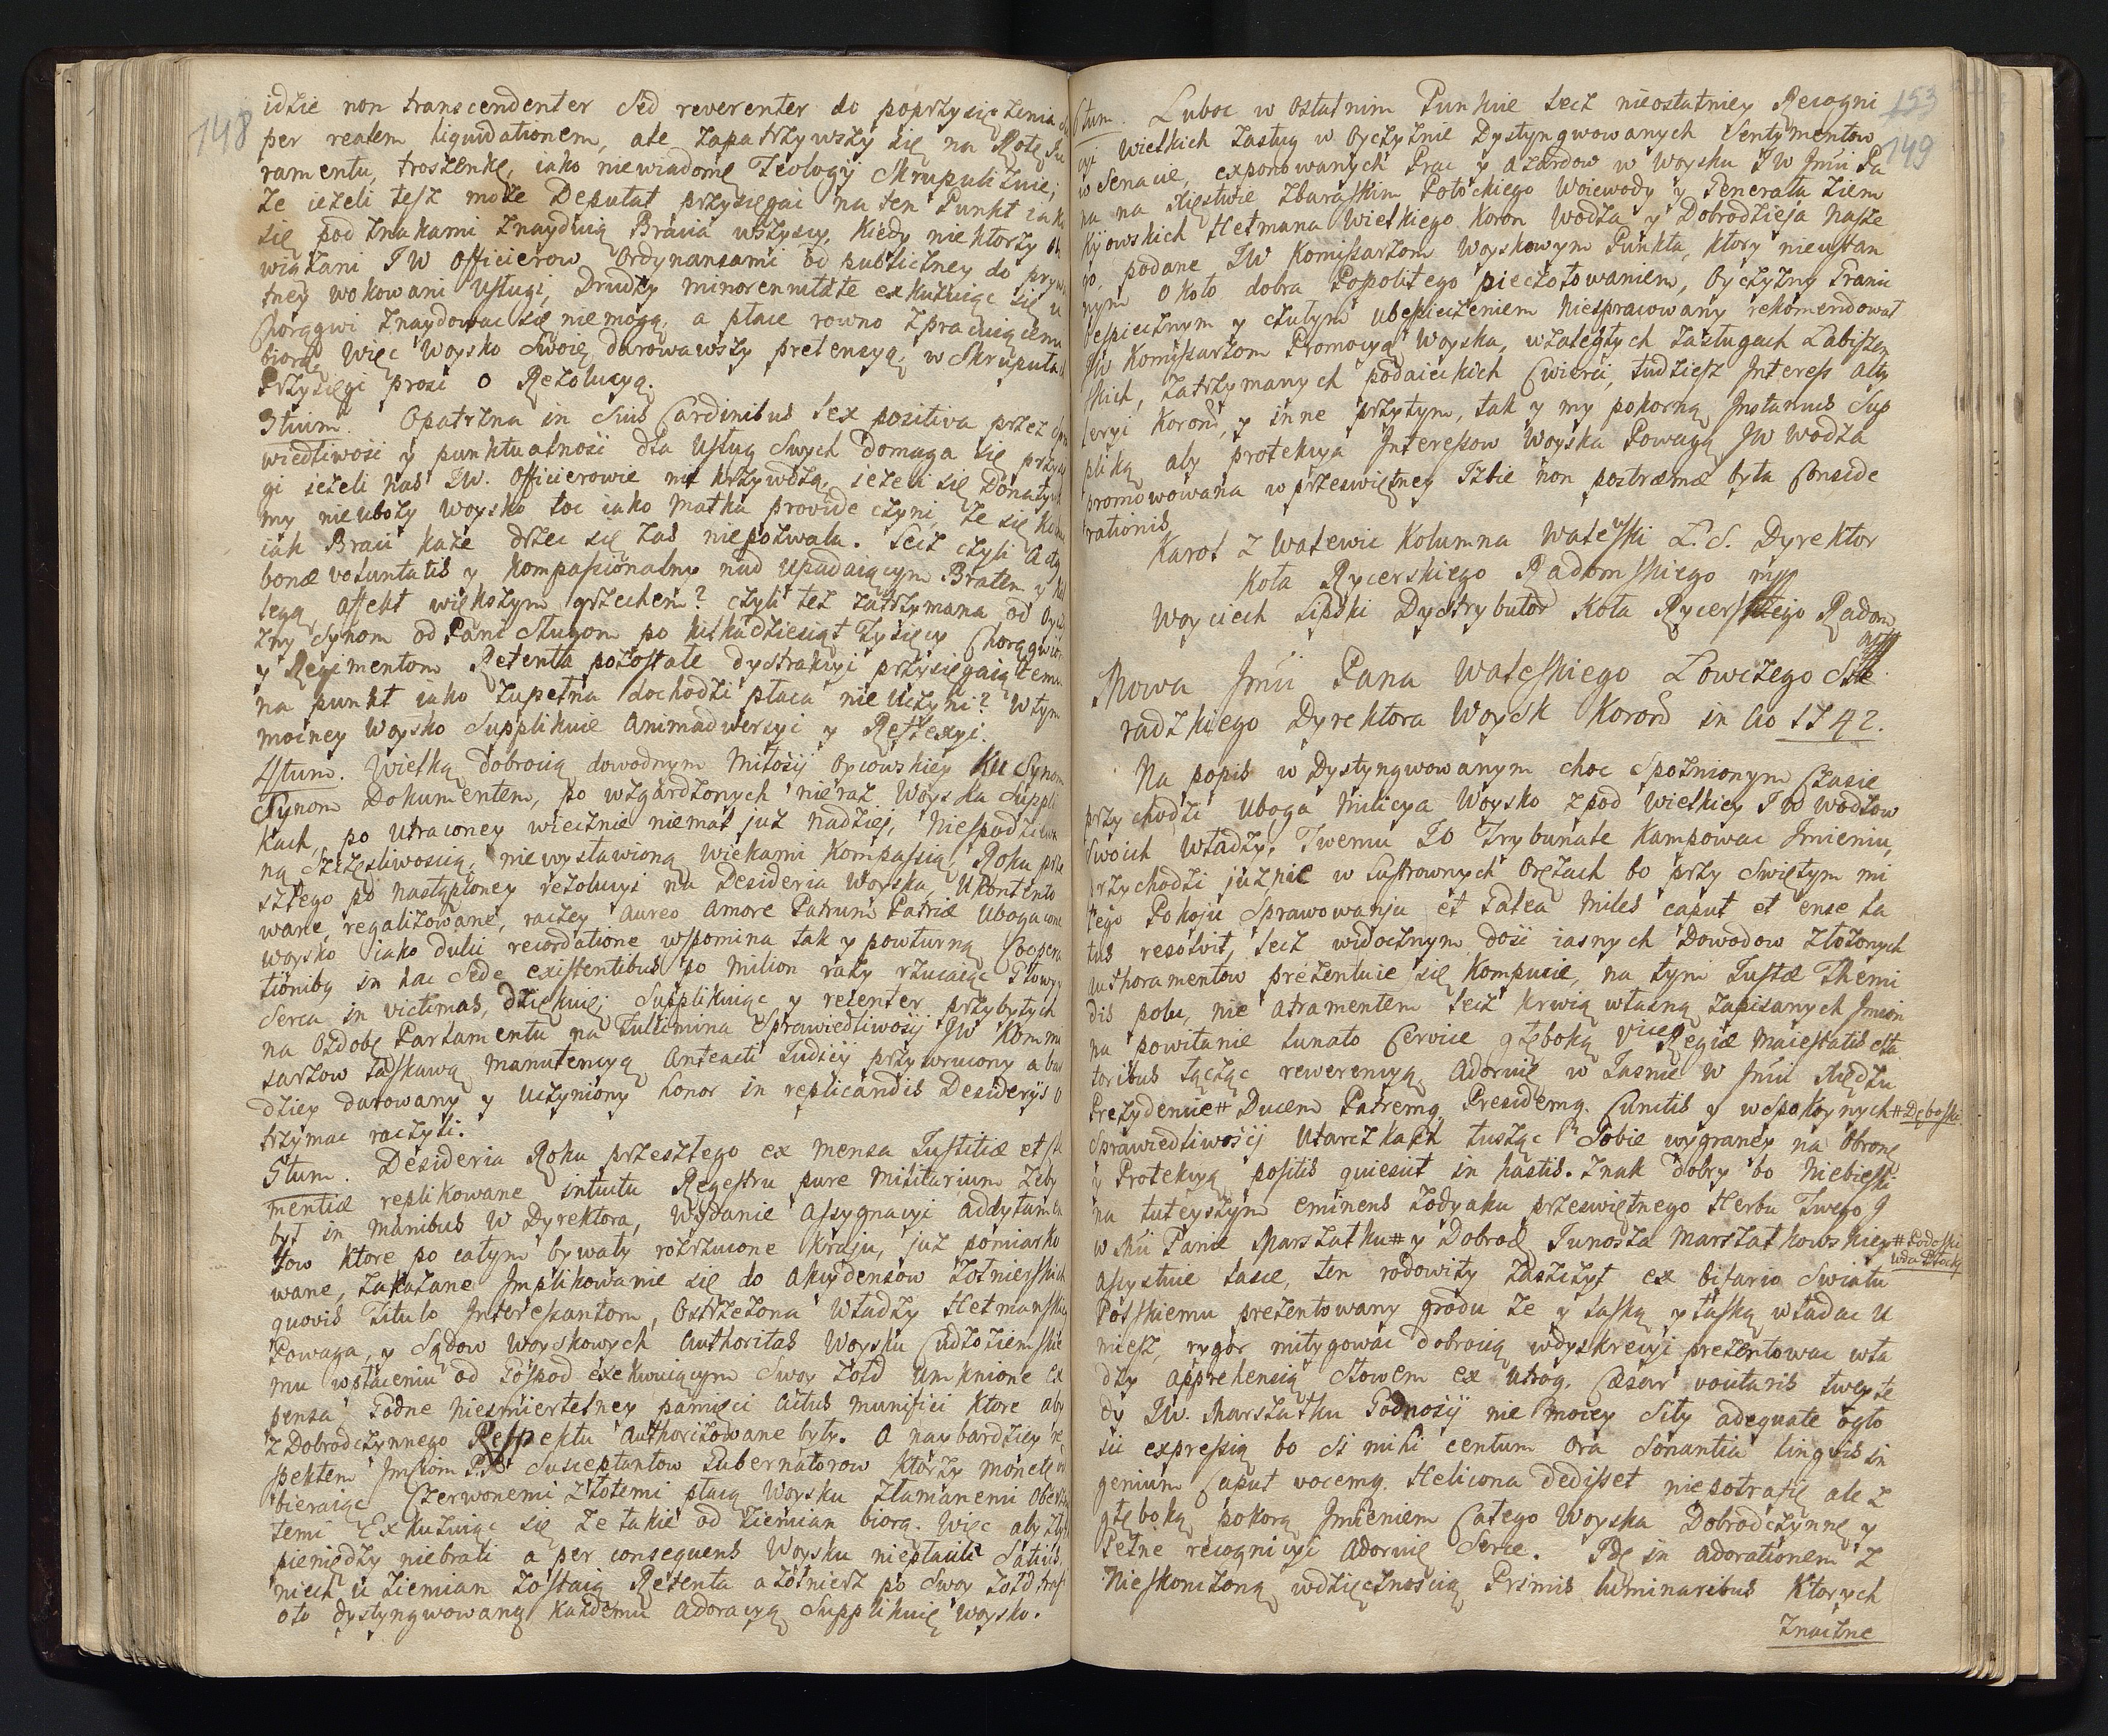 148
idzie non transcendenter sed reverenter do poprzysiężenia
per realem liquidationem, ale zapatrzywszy się na Rotę Ju
ramentu, troszenkę, iako niewiadomę Teologij Skrupulizuie;
że ieżeli tesz może Deputat przysięgai na ten Punkt iako
się pod znakami znayduią Bracia wszyscy, Kiedy niektorzy ob
wiązani JW Officierow Ordynansami od publiczney do prywa
tney wokowani usługi, Drudzy minorennitate exkuzuiąc się u
Chorągwi znaydowac się niemogą, a płace rowno zpracuiącemi
biorą, Więc Woysko Swoię darowawszy pretensyą, w Skrupułach
Przysięgi prosi o Rezolucyą.
3tium. Opatrzna in Suis Cardinibus Lex pozitiva przez spra
wiedliwosi y punktualnosi dla Usług Swych domaga się przysię
gi ieżeli nas JW. Officierowie nie krzywdzą, ieżeli się Donatywa
my nieubożą woysko toc iako Matka provide czyni, że się
iak Braci każe drzec się zas niepozwala. Lecz czyli Acty
bonæ voluntatis y kompassionalny nad upadaiącym Bratem y Kol
legą affekt większym grzechem? czyli też zatrzymana od Oyczy
zny Synom od Pani Sługom po kilkadziesiąt tysięcy Chorągwiom
y Regimentom Retenta pozostałe dystrakcyi przysięgaiącemu
na punkt iako zupełna dochodzi płaca nie uczyni? W tym
mocney Woysko Supplikuie Animadwersyi y Reflexyi.
4tum. Wielką dobrocią dowodnym Miłosij Oycowskiey Ku Synom
Synom Dokumentem, po wzgardzonych nieraz Woyska Suppli
kach, po utraconey wiecznie niemal już nadziej, Niespodziewa
ną Szczęsliwoscią, niewysławioną wiekami Kompassią, Roku prze
szłego po nastąpioney rezolucyi na Desideria Woyska, Ukontento
wane, regalizowane, raczey aureo amore Patrum Patriæ Ubogacone
woysko iako dulci recordatione wspomina tak y powturną Coopera
tioniby in hac Sede existentibus po Milion razy rzucaiąc Głowy y
Serca in victimas, dziękuię; Supplikuiąc y recenter przybyłych
na Ozdobę Parlamentu na Fulcimina Sprawiedliwosij JW Kommi
sarzow łaskawą manutencyą Anteacti Iudicij przywrocony a bar
dziey darowany y uczyniony honor in replicandis Desiderijs o
trzymac raczyli.
5tum. Desideria Roku przeszłego ex mensa Iustitiæ et
mentiæ replikowane intuitu Regestru pure Militarium żeby
był in manibus W Dyrektora, Wydanie Assygnacyi addytamen
tow ktore po całym bywały rozrzucone Kraju, już pomiarko
wane, Zakazane Implikowanie się do Akcydensow Żołnierskich
quovis Titulo Interessantom, Ostrzeżona Władzy Hetmanskiey
Powaga, y Sądow Woyskowych Authoritas Woysku Cudzoziemskie
mu wpłaceniu od Gospod exekwuiącym Swoy żołd umknione ex
pensa Godne niesmiertelney pamięci Actus munifici ktore aby
z Dobroczynnego Respektu Authorizowane były. A naybardziey re
spektem Jmciom PP Susceptantow Gubernatorow ktorzy monetę od
bieraiąc Czerwonemi złotemi płacą Woysku złamanemi Oberznię
temi Exkuzuiąc się że takie od ziemian biorą. Więc aby złych
pieniędzy niebrali a per consequens Woysku niepłacili Satius,
niech u ziemian zostaią Retenta a żołnierz po Swoy żołd trafi
oto dystyngwowaną każdemu adoracyą Supplikuię Woysko.
153
149
6tum. Luboc w Ostatnim Punkcie lecz nieostatniey Recogni
cyi wielkich zasług w Oyczyznie Dystyngwowanych Sentymentow
w Senacie, exponowanych Prac y Azardow w Woysku JW Jmci Pa
na na Xięstwie Zbaraskim Potockiego Woiewody y Generała Ziem
Kyiowskich Hetmana Wielkiego Koron Wodza y Dobrodzieja Nasze
go, podane JW Komissarzom Woyskowym Punkta, ktory nieustan
nym Około dobra Pospolitego pieczołowaniem, Oyczyzny Granic
bespiecznym y czułym ubespieczeniem Niespracowany rekomendował
JW Komissarzom Promocyą Woyska, wzaległych zasługach Łabiszyn
skich, zatrzymanych podaickich Cwierci, tudziesz Interess Alty
leryi Korond, y inne przytym, tak y my pokorną Instamus Sup
pliką aby protekcya Interessow Woyska Powagą JW Wodza
promowowana w przeswiętney Izbie non postræmæ była Conside
rationis.
Karol z Walewic Kolumna Walewski Ł. S. Dyrektor
Koła Rycerskiego Radomskiego mp
Woyciech Lipski Dystrybutor Koła Rycerskiego Radom
mp
Mowa Jmci Pana Waleskiego Łowczego Sie
radzkiego Dyrektora Woysk Korond in Ao 1742.
Na popis w Dystyngwowanym choc Spoznionym Czasie
przychodzi uboga Milicya Woysko zpod wielkiey JW Wodzow
Swoich Władzy. Twemu to Trybunale Kampowac Imieniu,
przychodzi już nie w Lustrownych Orężach bo przy Swiętym mi
łego Pokoju Sprawowanju et Galea Miles caput et ense la
tus resolvit, lecz widocznym dosi iasnych Dowodow złożonych
authoramentow prezentuie się Kompucie, na tym Iustæ Themi
dis polu, nie atramentem lecz krwią własną zapisanych Imion
na powitanie lunato Cervice głęboką vice Regiæ Maiestatis sta
toribus łącząc rewerencyą, Adoruię w Jasnie W Jmci Xiędzu
Prezydencie# Ducem Patremq. Presidemq. Cunctis y wspokoynych #Dęboski
Sprawiedliwosij Utarczkach tusząc Sobie wygraney na Obronę
y Protekcyą positis quiescit in hastis. Znak dobry bo Niebieski
na tuteyszym eminens Zodyaku przeswiętnego Herbu Twego J
W Mci Panie Marszałku# y Dobrod Junosza Marszałkowskiey #Podoski
wda Płocky
Assystuie Lasce, ten rodowity Zaszczyt ex bifario Swiatu
Polskiemu prezentowany grodu że y laską y łaską władac u
miesz, rygor mitygowac dobrocią wdyskrecyi prezentowac wła
dzy apprehensią Słowem ex utroq. Cæsar vocitaris twey te
dy JW. Marszałku Godnosij nie moiey Siły adequate ogło
sic expressią bo Si mihi centum Ora Sonantia linguis in
genium Caput vocemq. Helicona dedisset niepotrafię ale z
głęboką pokorą Imieniem Całego Woyska Dobroczynnę y
Pełne recognicyi Adoruię Serce. Idę in adorationem z
Nieskonczoną wdzięcznoscią Primis luminaribus ktorych
Znaczne